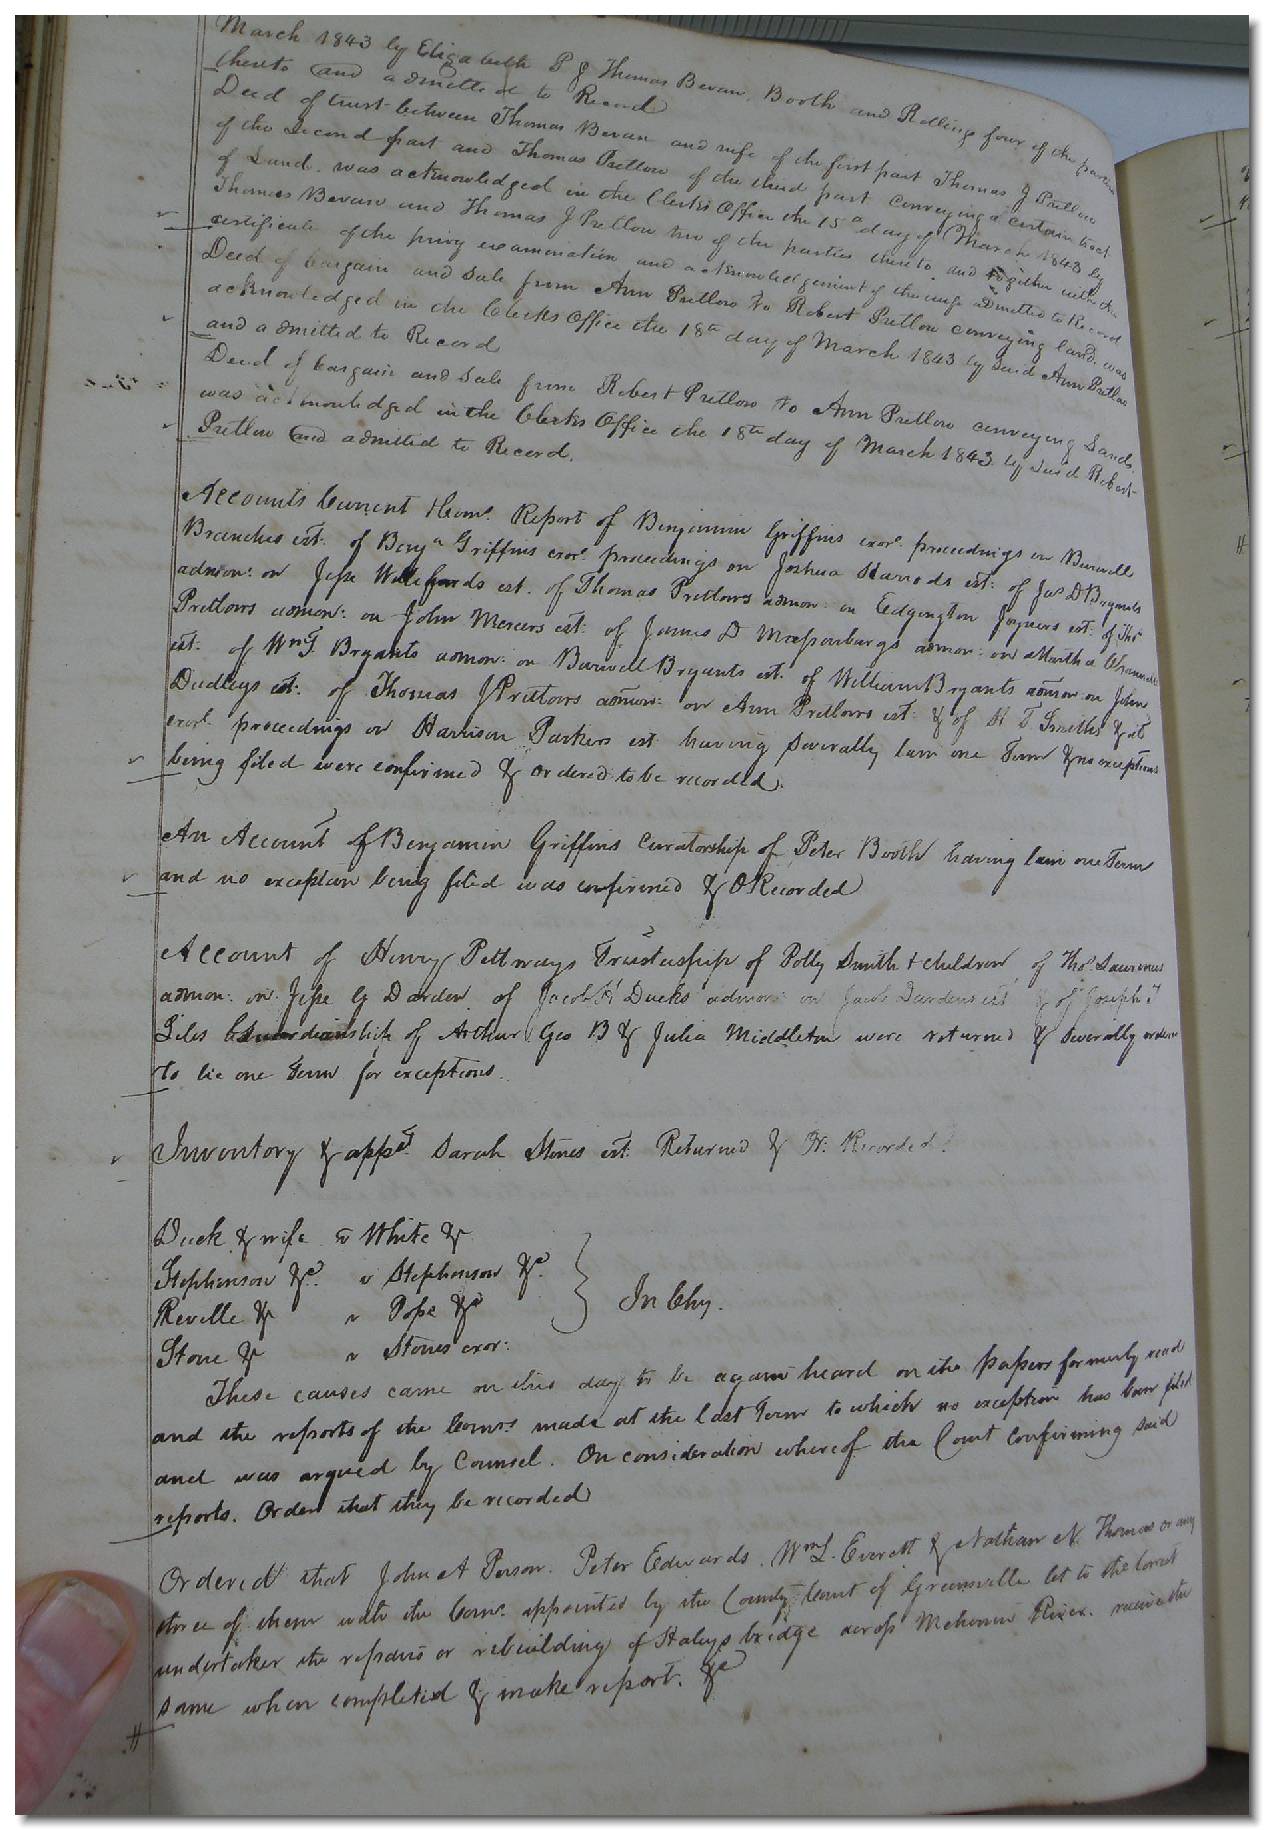 March 1843 by Elizabeth P & Thomas Bevan, Booth and Rolling four of the parties
thereto and admitted to Record
Deed of trust between Thomas Bevan and wife of the first part Thomas J Pretlow
of the Second part and Thomas Pretlow of the third part conveying a certain tract
of Land. was acknowledged in the Clerks Office the 15th day of March 1843 by
Thomas Bevan and Thomas J Pretlow two of the parties thereto and together with the
certificate of the privy examination and acknowledgement of the wife admitted to Record
Deed of bargain and sale from Ann Pretlow to Robert Pretlow conveying land. was
acknowledged in the Clerks Office the 18th day of March 1843 by said Ann Pretlow
and admitted to Record
Deed of bargain and sale from Robert Pretlow to Ann Pretlow conveying Lands.
was acknowledged in the Clerks Office the 18th day of March 1843 by said Robert
Pretlow and admitted to Record.
Accounts Current & Coms. Report of Benjamin Griffins exor. proceedings on Burwell
Branches est. of Benja Griffins exor. proceedings on Joshua Harrods est: of Jas D Bryants
admon: on Jesse Willifords est. of Thomas Pretlows admon: on Edgington Joyners est. of Thos
Pretlows admon: on John Mercers est: of James D Massenburgs admon: on Martha
est: of Wm J. Bryants admon: on Burwell Bryants est. of William Bryants admon on John
Dudleys est: of Thomas J Pretlows admon: on Ann Pretlows est & of R T Smiths &
exor. proceedings on Harrison Parkers est having severally lain one Term & no exceptions
being filed were confirmed & ordered to be recorded.
An Account of Benjamin Griffins Curatorship of Peter Booth having lain one Term
and no exception being filed was confirmed & O Recorded
Account of Henry Pettways Trusteeship of Polly Smith & children of Thos. Lawrence
admon: on Jesse G Darden of Jacob H Ducks admon: on Jacob Dardens est & of Joseph T
Giles Guardianship of Arthur, Geo B & Julia Middleton were returned & severally ordered
to lie one Term for exceptions.
Inventory & appt. Sarah Stones est. Returned & Or. Recorded.
Duck & wife v White &
Stephenson &c. v Stephenson &c.
Reville & v Pope &c } In Chy.
Stone & v Stones exor:
These causes came on this day to be again heard on the papers formerly read
and the reports of the Coms. made at the last Term to which no exception has been filed
and was argued by Counsel. On consideration whereof the Court confirming said
reports. Order that they be recorded
Ordered that John A Person. Peter Edwards. Wm L. Everett & Nathan N. Thomas or any
three of them with the Coms. appointed by the County Court of Greensville let to the lowest
undertaker the repairs or rebuilding of Haleys bridge across Meherrin River. receive the
same when completed & make report. &c